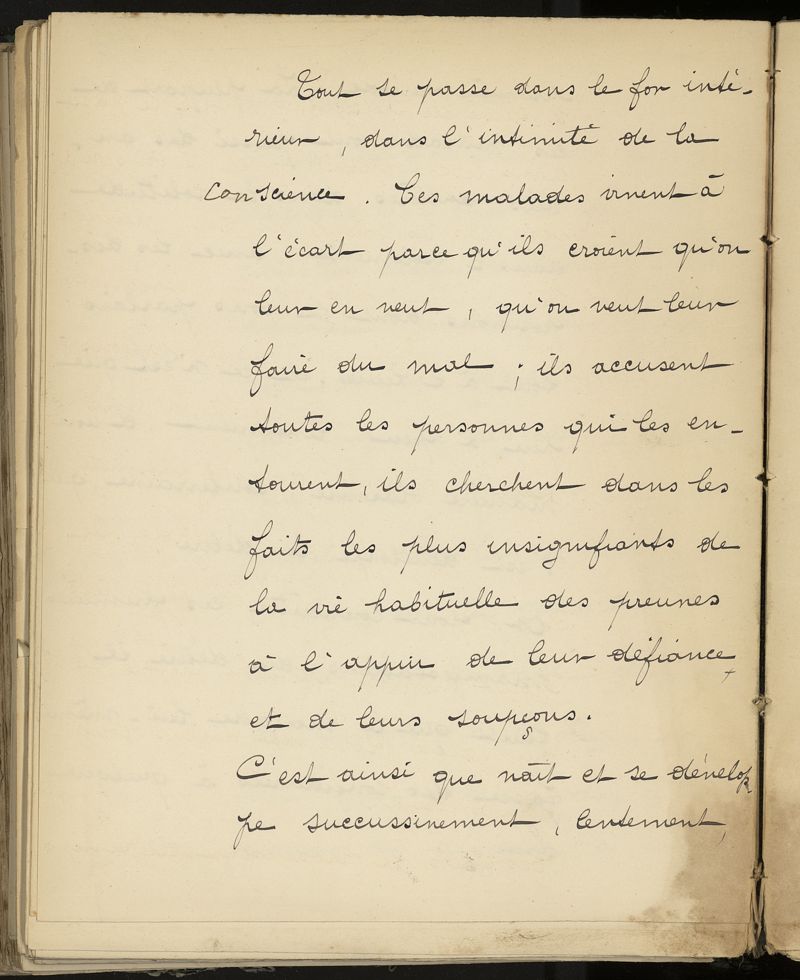 Tout se passe dans le for inté-
rieur, dans l'intimité de la
conscience. Ces malades vivent à
l'écart parce qu'ils croient qu'on
leur en veut, qu'on veut leur
faire du mal ; ils accusent
toutes les personnes qui les en-
tourent, ils cherchent dans les
faits les plus insignifiants de
la vie habituelle des preuves
à l'appui de leur défiance
et de leurs soupçons.
C'est ainsi que naît et se dévelop
pe successivement, lentement,